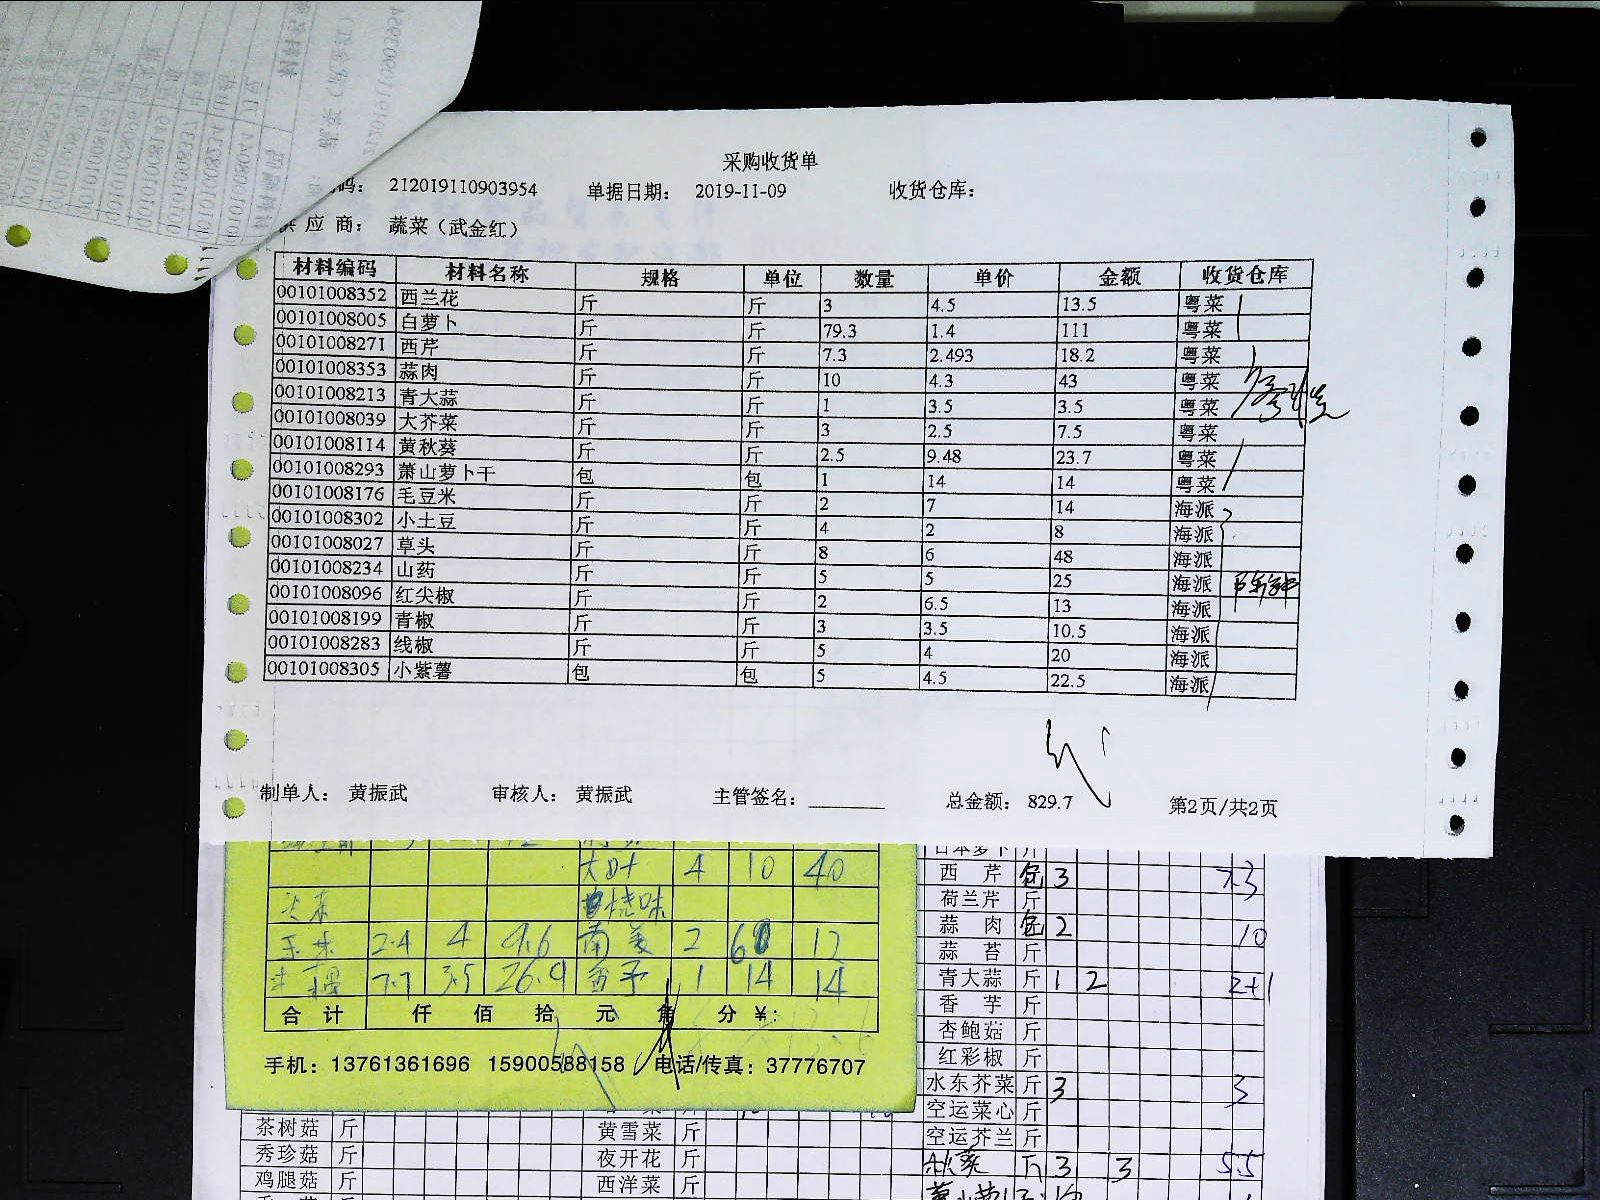 采购收货单
码： 212019110903954 单据日期： 2019-11-09 收货仓库：
供 应 商： 蔬菜（武金红）
材料编码 材料名称 规格 单位 数量 单价 金额 收货仓库
00101008352 西兰花 斤 斤 3 4.5 13.5 粤菜
00101008005 白萝卜 斤 斤 79.3 1.4 111 粤菜
00101008271 西芹 斤 斤 7.3 2.493 18.2 粤菜
00101008353 蒜肉 斤 斤 10 4.3 43 粤菜
00101008213 青大蒜 斤 斤 1 3.5 3.5 粤菜
00101008039 大芥菜 斤 斤 3 2.5 7.5 粤菜
00101008114 黄秋葵 斤 斤 2.5 9.48 23.7 粤菜
00101008293 萧山萝卜干 包 包 1 14 14 粤菜
00101008176 毛豆米 斤 斤 2 7 14 海派
00101008302 小土豆 斤 斤 4 2 8 海派
00101008027 草头 斤 斤 8 6 48 海派
00101008234 山药 斤 斤 5 5 25 海派
00101008096 红尖椒 斤 斤 2 6.5 13 海派
00101008199 青椒 斤 斤 3 3.5 10.5 海派
00101008283 线椒 斤 斤 5 4 20 海派
00101008305 小紫薯 包 包 5 4.5 22.5 海派
制单人： 黄振武 审核人： 黄振武 主管签名： 总金额： 829.7 第2页/共2页
大叶 4 10 40
烧味
玉米 2.4 4 9.6 南美 2 6 12
7.7 3.5 26.9 香芋 1 14 14
合 计 仟 佰 拾 元 角 分 ￥：
手机：13761361696 15900588158 电话/传真：37776707
日本萝卜 斤
西 芹 包 3 7.3
荷兰芹 斤
蒜 肉 包 2 10
蒜 苔 斤
青大蒜 斤 1 2 2+1
香 芋 斤
杏鲍菇 斤
红彩椒 斤
水东芥菜 斤 3 3
空运菜心 斤
空运芥兰 斤
秋葵 斤 3 3 5.5
茶树菇 斤 黄雪菜 斤
秀珍菇 斤 夜开花 斤
鸡腿菇 斤 西洋菜 斤